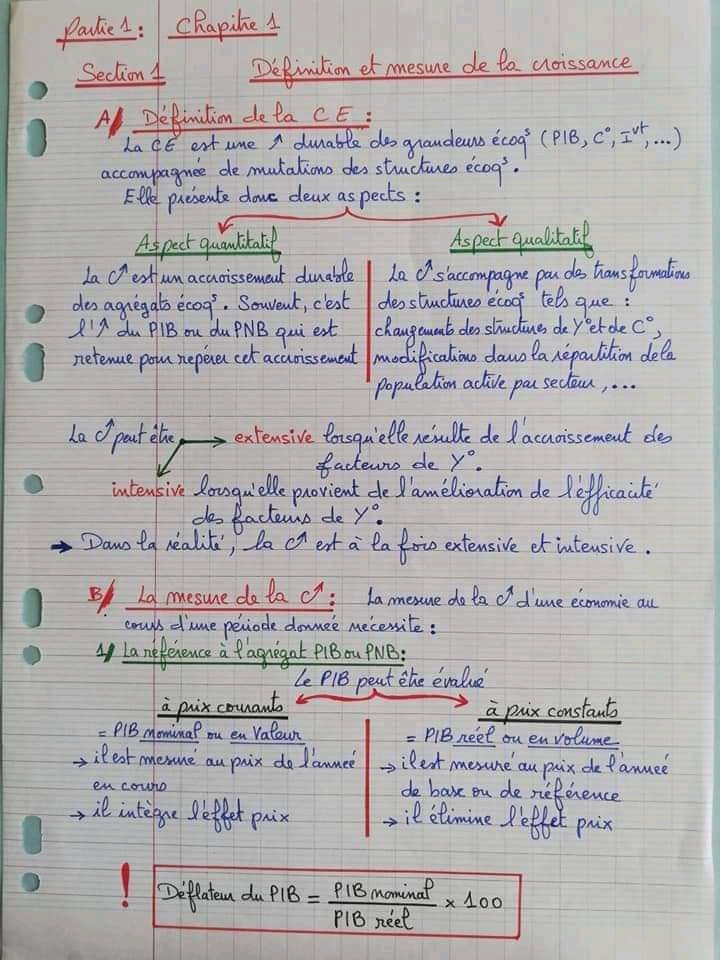 Partie 1 : Chapitre 1
Section 1 Définition et mesure de la croissance
A/ Définition de la CE :
La CE est une ↗ durable des grandeurs écoqˢ (PIB, C°, Iᵛᵗ, ...)
accompagnée de mutations des structures écoqˢ.
Elle présente donc deux aspects :
Aspect quantitatif
La C↗ est un accroissement durable
des agrégats écoqˢ. Souvent, c'est
l'↗ du PIB ou du PNB qui est
retenue pour repérer cet accroissement
Aspect qualitatif
La C↗ s'accompagne par des transformations
des structures écoqˢ tels que :
changements des structures de Y° et de C°,
modifications dans la répartition de la
population active par secteur, ...
La C↗ peut être → extensive lorsqu'elle résulte de l'accroissement des
facteurs de Y°.
intensive lorsqu'elle provient de l'amélioration de l'éfficacité
des facteurs de Y°.
→ Dans la réalité, la C↗ est à la fois extensive et intensive.
B/ La mesure de la C↗ : La mesure de la C↗ d'une économie au
cours d'une période donneé nécessite :
1/ La référence à l'agrégat PIB ou PNB :
Le PIB peut être évalué
à prix courants
= PIB nominal ou en valeur
→ il est mesuré au prix de l'anneé
en cours
→ il intègre l'éffet prix
à prix constants
= PIB réel ou en volume
→ il est mesuré au prix de l'anneé
de base ou de référence
→ il élimine l'éffet prix
! Déflateur du PIB = PIB nominal / PIB réel × 100